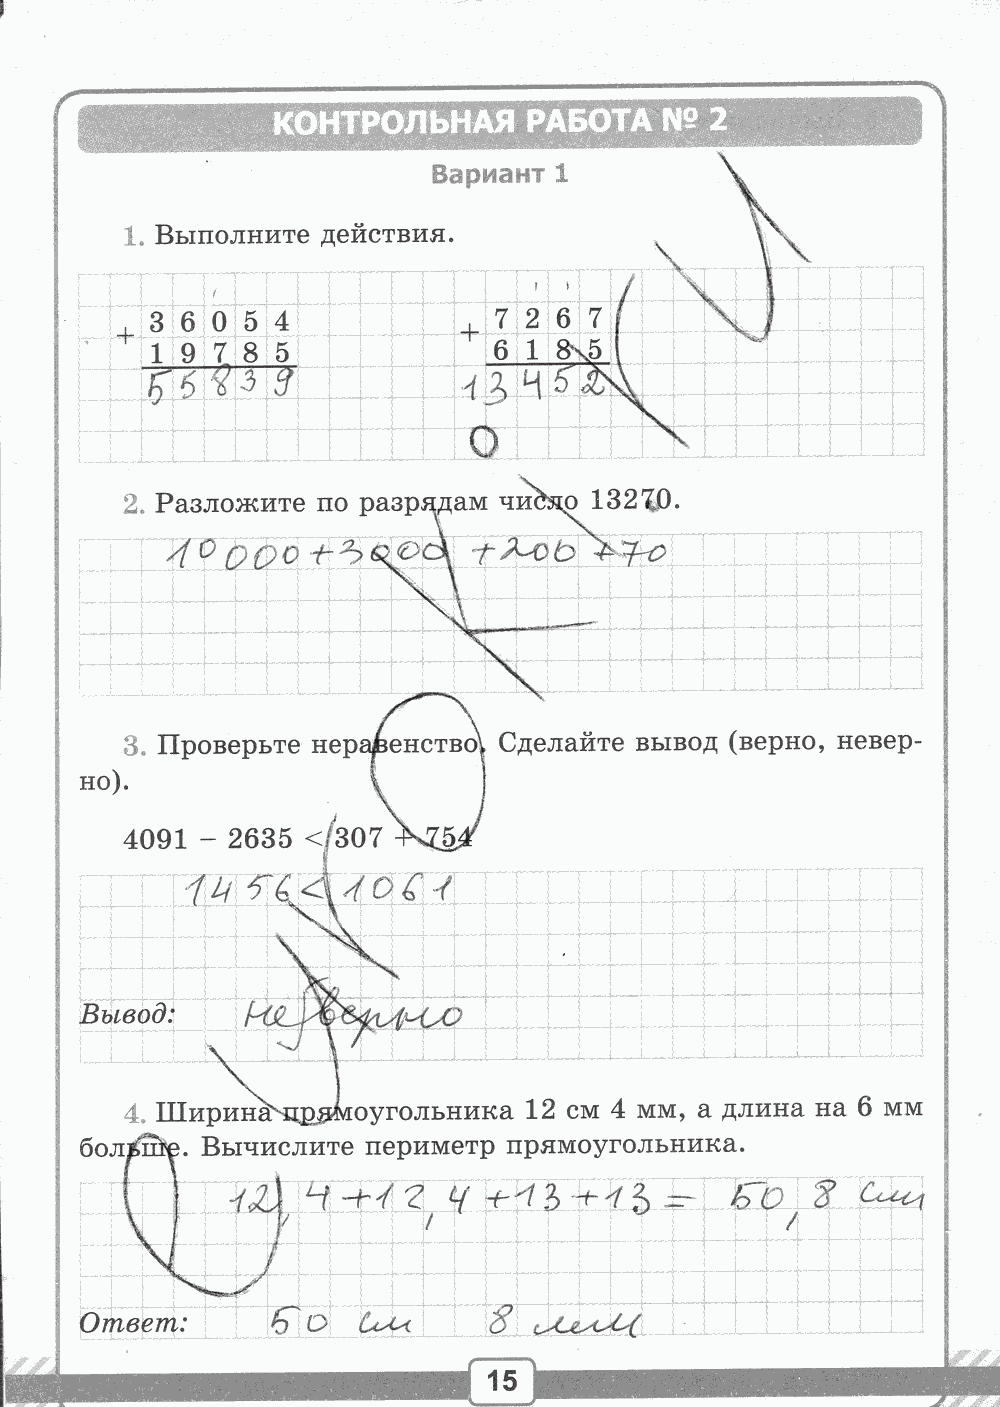 КОНТРОЛЬНАЯ РАБОТА № 2
Вариант 1
1. Выполните действия.
+ 3 6 0 5 4 + 7 2 6 7
1 9 7 8 5 6 1 8 5
5 5 8 3 9 1 3 4 5 2
2. Разложите по разрядам число 13270.
10000+3000+200+70
3. Проверьте неравенство. Сделайте вывод (верно, невер-
но).
4091 − 2635 < 307 + 754
1456<1061
Вывод: неверно
4. Ширина прямоугольника 12 см 4 мм, а длина на 6 мм
больше. Вычислите периметр прямоугольника.
12,4+12,4+13+13= 50,8 см
Ответ: 50 см 8 мм
15